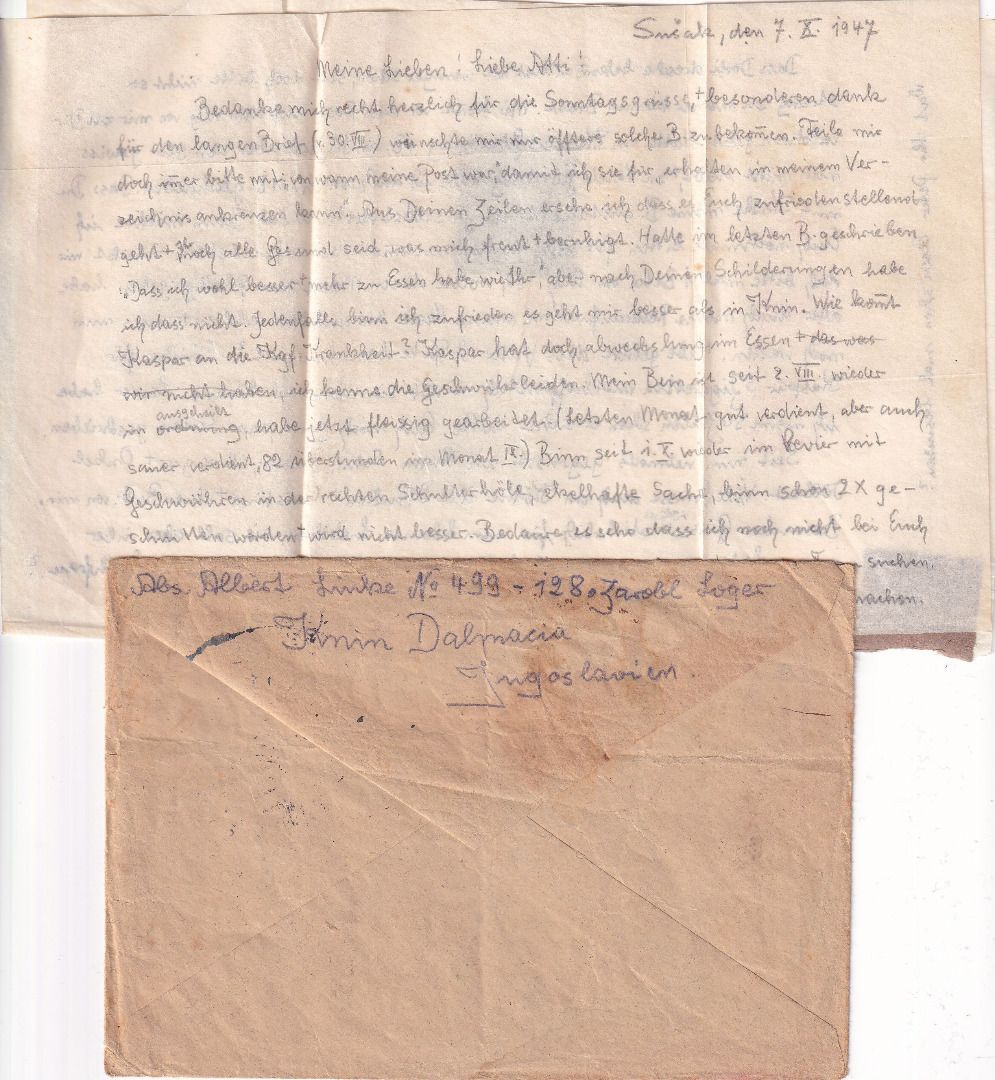 Sušak, den 7. X. 1947
Meine Lieben! Liebe Atti!
Bedanke mich recht herzlich für die Sonntagsgrüsse, + besonderen dank
für den langen Brief (v. 30. VIII.) wünschte mir nur öffters solche B. zu bekom̄en. Teile mir
doch im̄er bitte mit, von wann meine Post war, damit ich sie für „erhalten in meinem Ver-
zeichnis ankreuzen kann". Aus Deinen Zeilen ersehe ich dass es Euch zufriedenstellend
geht + Ihr noch alle Gesund seid, was mich freut + beruhigt. Hatte im letzten B. geschrieben
„Dass ich wohl besser + mehr zu Essen habe, wie Ihr", aber nach Deinen Schilderungen habe
ich dass nicht. Jedenfalls binn ich zufrieden es geht mir besser als in Knin. Wie kom̄t
Kaspar an die Kgf. Krankheit? Kaspar hat doch abwechslung im Essen + das was
wir nicht haben, ich kenne die Geschwührleiden. Mein Bein ist seit 2. VIII. wieder
ausgeheilt
in ordnung, habe jetzt fleiszig gearbeitet. (Letzten Monat gut verdient, aber auch
sauer verdient, 82 überstunden im Monat IX.) Binn seit 1. X. wieder im Revier mit
Geschwühren in der rechten Schulterhöle, ekelhafte Sache, binn schon 2X ge-
schnitten worden + wird nicht besser. Bedaure es sehr dass ich noch nicht bei Euch
suchen.
machen.
Abs. Albert Linke No 499 - 128. Zarobl Loger
Knin Dalmacia
Jugoslavien.